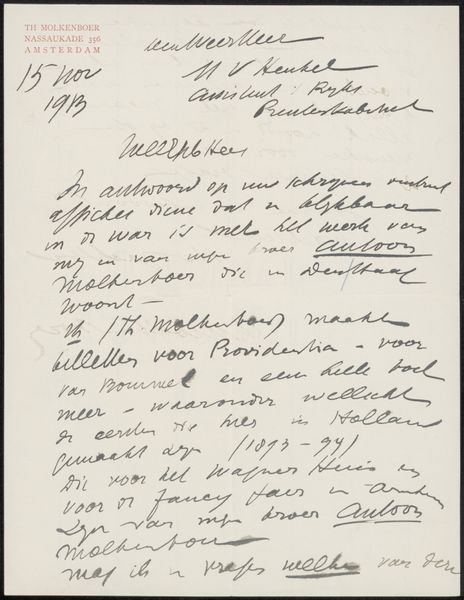 TH MOLKENBOER
NASSAUKADE 356
AMSTERDAM
15 Nov
1913
den Weer Heer
M V Henkel
Assistent: Rijks
Prentenkabinet
WelEdelHeer
In antwoord op uw schrijven omtrent
affiches diene dat u blijkbaar
in de war is met het werk van
mij en van mijn broer Antoon
Molkenboer die in den Haag
woont —
Ik (Th. Molkenboer) maakte
billetten voor Providentia — voor
van Bommel en een heele boel
meer — waaronder wellicht
de eersten die hier in Holland
gemaakt zijn (1893-94)
Die voor het Wagner Huis en
voor de fancy fair in Arnhem
zijn van mijn broer Antoon
Molkenboer
Mag ik u vragen welke van den